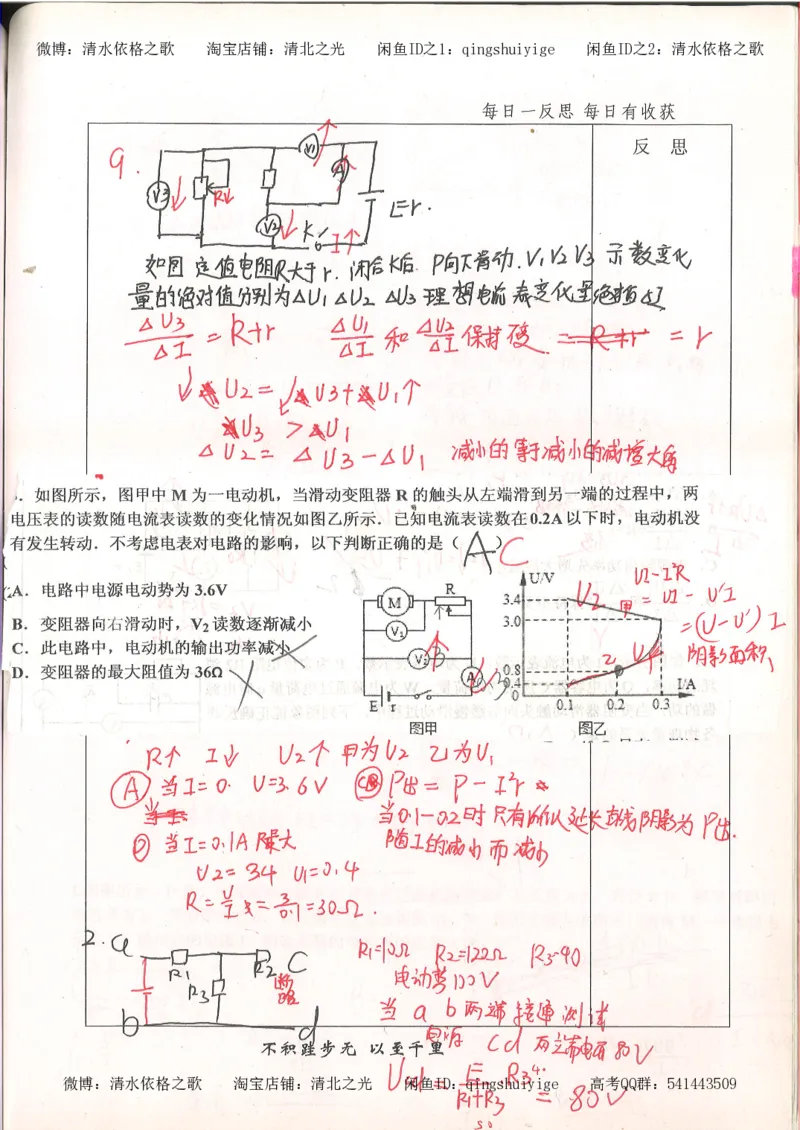 微博：清水依格之歌 淘宝店铺：清北之光 闲鱼ID之1：qingshuiyige 闲鱼ID之2：清水依格之歌
每日一反思 每日有收获
反 思
9.
V1
A
V3
R↓
V2
K
I↑
E r.
如图 定值电阻R大于r. 闭合K后. P向下滑动. V1 V2 V3 示数变化
量的绝对值分别为ΔU1 ΔU2 ΔU3 理想电流表变化量绝对值ΔI
ΔU3/ΔI = R+r ΔU1/ΔI 和 ΔU2/ΔI 保持不变 = r
↓ U2 = ↓U3 + U1↑
U3 > U1
ΔU2 = ΔU3 - ΔU1 减小的等于减小的减增大的
．如图所示，图甲中 M 为一电动机，当滑动变阻器 R 的触头从左端滑到另一端的过程中，两
电压表的读数随电流表读数的变化情况如图乙所示．已知电流表读数在0.2A以下时，电动机没
有发生转动．不考虑电表对电路的影响，以下判断正确的是（ A ） C
A．电路中电源电动势为 3.6V
B．变阻器向右滑动时，V2 读数逐渐减小
C．此电路中，电动机的输出功率减小
D．变阻器的最大阻值为 36Ω
M R
V1
V2
A
E r
图甲
U/V
3.4
3.0
0.8
0.4
0
0.1 0.2 0.3
I/A
图乙
U2
U1
UI-I²R
= UI - U'I
=(U-U')I
阴影面积
R↑ I↓ U2↑ 甲为U2 乙为U1
A 当I=0. U=3.6V P出 = P - I²r
当0.1-0.2时 只有 延长直线阴影为P出.
随I的减小而减小
D 当I=0.1A R最大
U2=3.4 U1=0.4
R=U/I = 3/0.1 =30Ω.
2. a
R1
R2 C
R3
断路
b
d
R1=10Ω R2=122Ω R3=40
电动势100V
当 a b 两端接 测试
电源 cd 两端电压 80V
不积跬步无 以至千里
微博：清水依格之歌 淘宝店铺：清北之光 闲鱼ID：qingshuiyige 高考QQ群：541443509
Ucd = E/(R1+R3) R3 = 80V
50